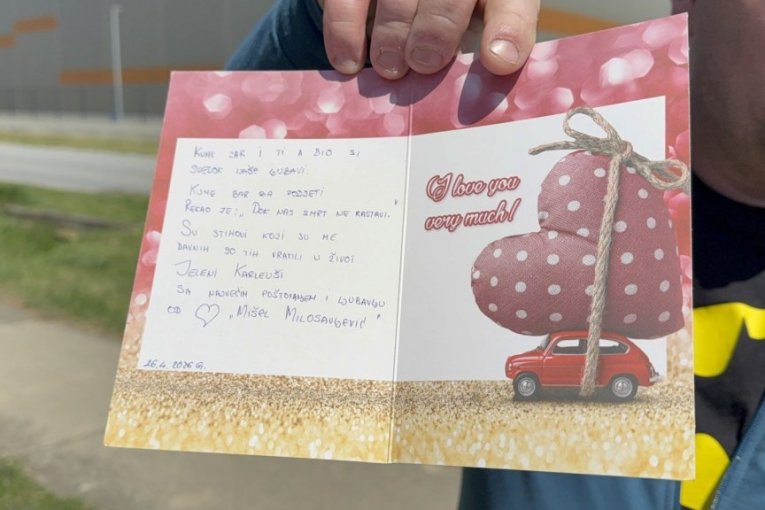 KUME ZAR I TI A BIO SI
SVEDOK NAŠE LJUBAVI.
KUME BAR GA PODSJETI
REKAO JE: „DOK NAS SMRT NE RASTAVI."
SU STIHOVI KOJI SU ME
DAVNIH 90 TIH VRATILI U ŽIVOT
JELENI KARLEUŠI
SA NAJVEĆIM POŠTOVANJEM I LJUBAVLJU
OD ♡ „MIŠEL MILOSAVLJEVIĆ"
16.4. 2026 G.
I love you
very much!